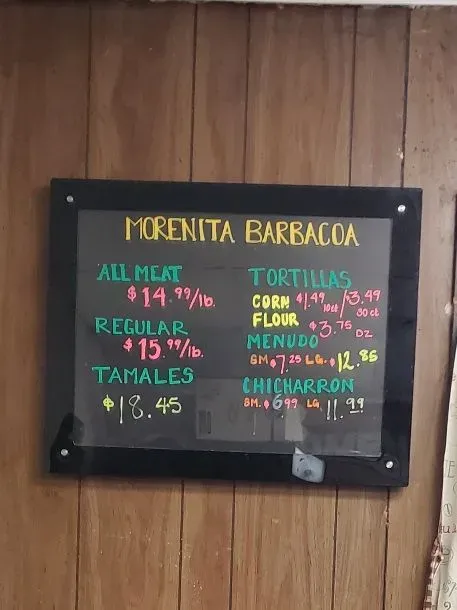 MORENITA BARBACOA
ALL MEAT
$14.99/lb.
REGULAR
$15.99/lb.
TAMALES
$18.45
TORTILLAS
CORN $1.49 10ct / $3.49 30ct
FLOUR $3.75 DZ
MENUDO
SM. $7.25 LG. $12.85
CHICHARRON
SM. $6.99 LG. 11.99